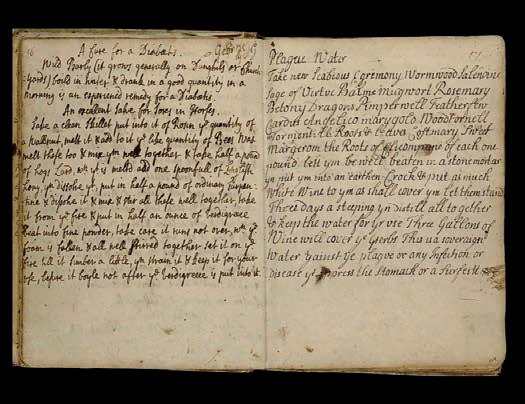 16
A Cure for a Diabetis.
Wild Barly (it grows generally on Dunghills or Church
:yards) boild in water & drank in a good quantity in a
morning is an experienced remedy for a Diabetis.
An excellent salve for Sores in Horses.
Take a clean Skillet put into it of Rosin ye quantity of
a wallnut, melt it & add to it ye like quantity of Bees wax
melt these too & mix ym well together & take half a pound
of hogs Lard, wn yt is melted add one spoonfull of English
hony, yn dissolve yt, put in half a pound of ordinary turpen
tine & dissolve it & mix & stir all these well together, take
it from ye fire & put in half an ounce of verdigrece
beat into fine powder, take care it runs not over, wn ye
foam is fallen & all well stirred together set it on ye
fire till it simber a litle, yn strain it & keep it for your
use, before it boyle not after ye verdigreece is put into it.
17
Plague Water
Take new Scabious Egremony Wormwood
Sage of Virtue Balme mugwort Rosemary
Betony Dragons Pimpernell Featherfew
Cardus Angelico marygold Woodsornell
Tormentill Roots & Leives Costmary Sweet
Margerom the Roots of Elicompane of each one
pound. lett ym be well beaten in a stone mortar
yn putt ym into an earthen Crock & putt as much
White Wine to ym as shall cover ym Let them stand
Three days a steeping yn Distill all to gether
& keep the water for yr use Three Gallons of
Wine will cover ye Herbs This is a sovereign
Water against ye plague or any Infection or
disease to opress the Stomack or a Surfeitt